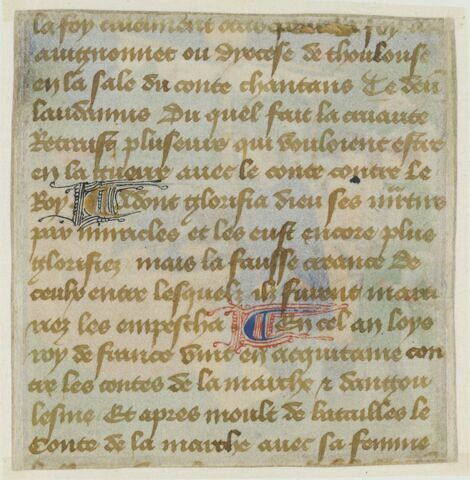 la foy
auignonnet ou dyocese de thoulouse
en la sale du conte chantans Te deu
laudamus Du quel fait la cruaute
Retraist pluseurs qui vouloient estre
en la guerre auec le conte contre Le
Roy Adont glorifia dieu ses martirs
par miracles et les eust encore plus
glorifiez mais la faulse creance de
ceulx entre lesquelz ilz furent marti
riez les empescha En cel an loys
roy de france vint en acquitaine con
tre les contes de la marche ⁊ dangou
lesme Et apres moult de batailles le
Conte de la marche auec sa femme